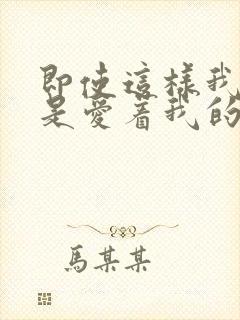 即使這樣我
是愛着我的
馬某某